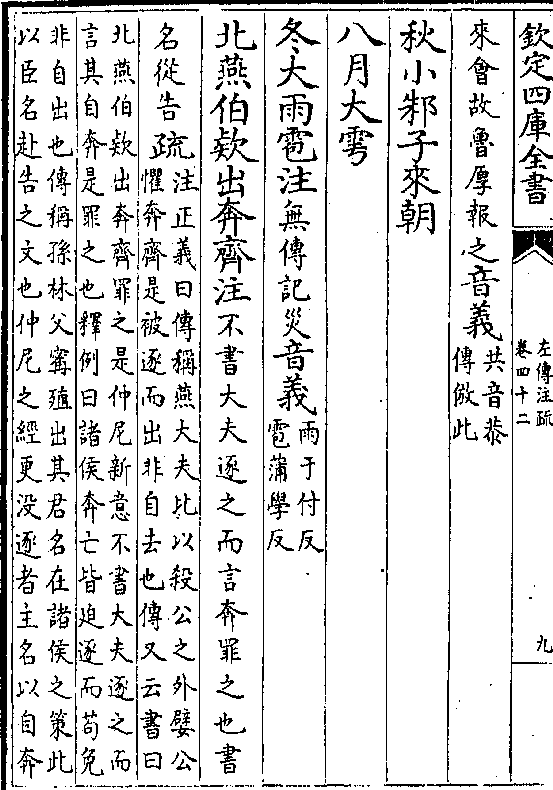 欽定四庫全書
左傳注疏
卷四十二
九
來會故魯厚報之音義
共音恭
傳倣此
秋小邾子來朝
八月大雩
冬大雨雹注無傳記災音義
雨于付反
雹蒲學反
北燕伯欵出奔齊注不書大夫逐之而言奔罪之也書
名從告疏
注正義曰傳稱燕大夫比以殺公之外嬖公
懼奔齊是被逐而出非自去也傳又云書曰
北燕伯欵出奔齊罪之是仲尼新意不書大夫逐之而
言其自奔是罪之也釋例曰諸侯奔亡皆迫逐而苟免
非自出也傳稱孫林父甯殖出其君名在諸侯之策此
以臣名赴告之文也仲尼之經更没逐者主名以自奔